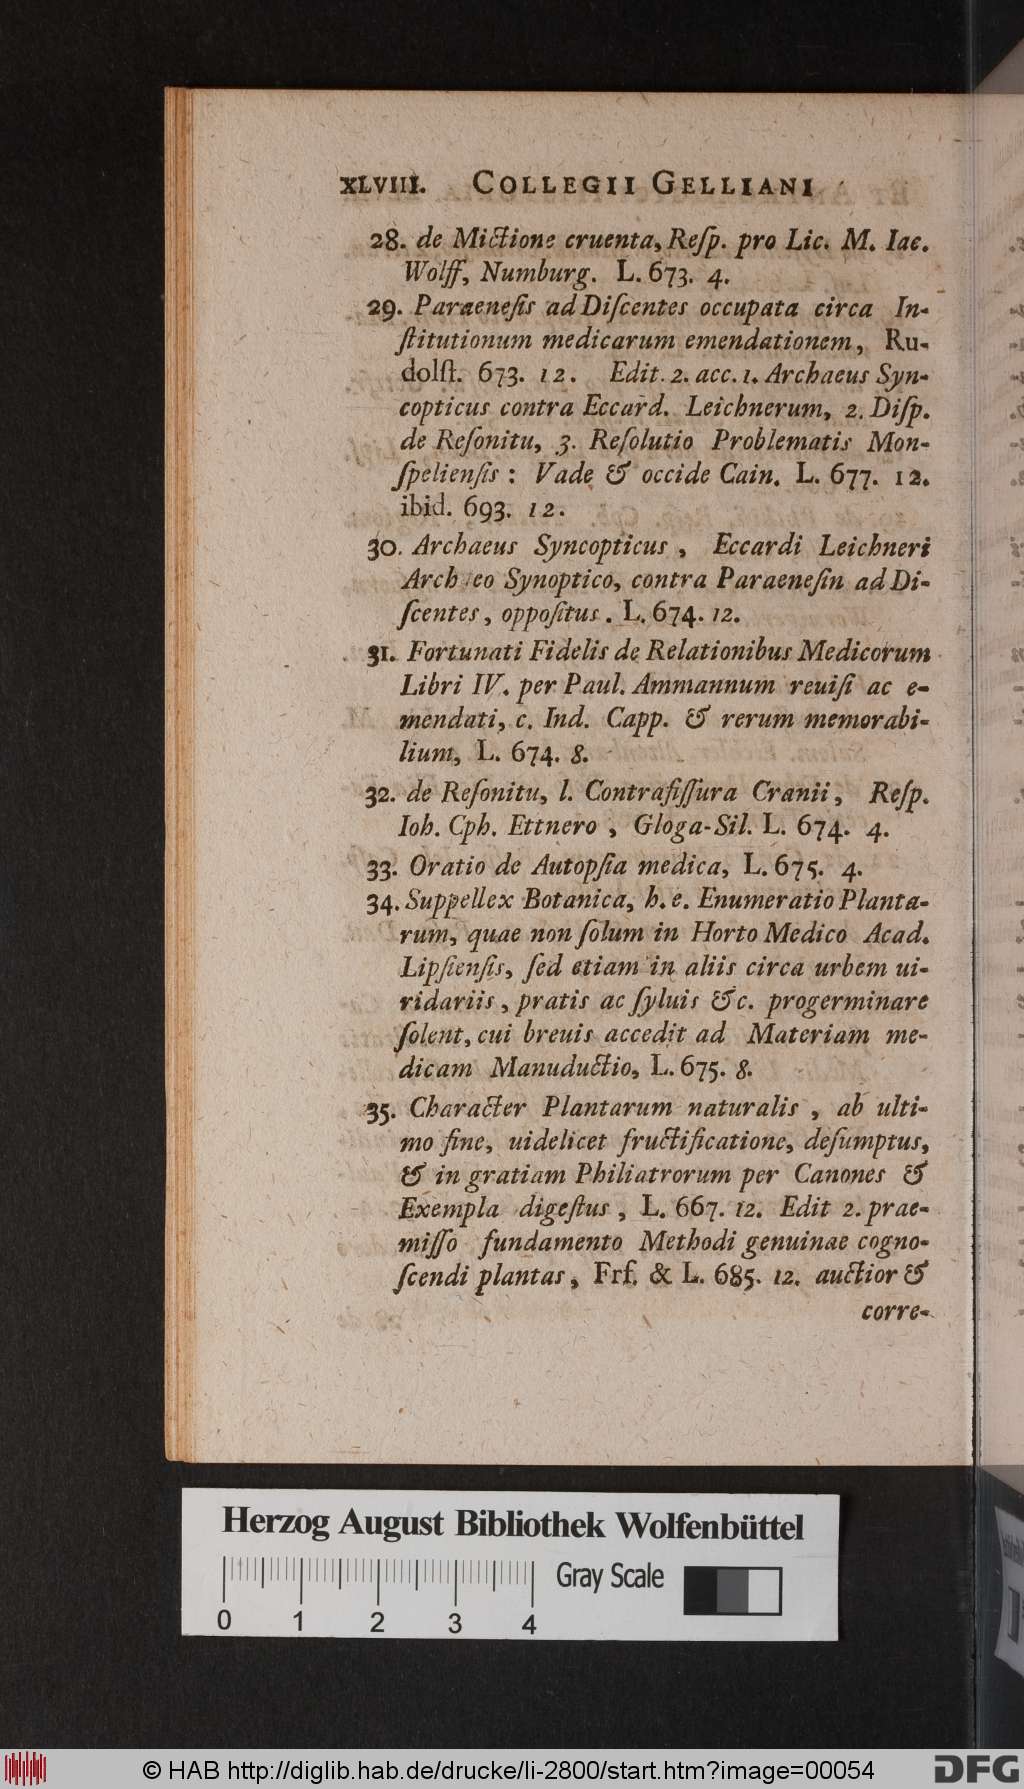 XLVIII. COLLEGII GELLIANI
28. de Mictione cruenta, Reſp. pro Lic. M. Iac.
Wolff, Numburg. L. 673. 4.
29. Paraeneſis ad Diſcentes occupata circa In-
ſtitutionum medicarum emendationem, Ru-
dolſt. 673. 12. Edit. 2. acc. 1. Archaeus Syn-
copticus contra Eccard. Leichnerum, 2. Diſp.
de Reſonitu, 3. Reſolutio Problematis Mon-
ſpelienſis: Vade & occide Cain. L. 677. 12.
ibid. 693. 12.
30. Archaeus Syncopticus, Eccardi Leichneri
Archaeo Synoptico, contra Paraeneſin ad Di-
ſcentes, oppoſitus. L. 674. 12.
31. Fortunati Fidelis de Relationibus Medicorum
Libri IV. per Paul. Ammannum reuiſi ac e-
mendati, c. Ind. Capp. & rerum memorabi-
lium, L. 674. 8.
32. de Reſonitu, l. Contrafiſſura Cranii, Reſp.
Ioh. Cph. Ettnero, Gloga-Sil. L. 674. 4.
33. Oratio de Autopſia medica, L. 675. 4.
34. Suppellex Botanica, h. e. Enumeratio Planta-
rum, quae non ſolum in Horto Medico Acad.
Lipſienſis, ſed etiam in aliis circa urbem ui-
ridariis, pratis ac ſyluis &c. progerminare
ſolent, cui breuis accedit ad Materiam me-
dicam Manuductio, L. 675. 8.
35. Character Plantarum naturalis, ab ulti-
mo fine, uidelicet fructificatione, deſumptus,
& in gratiam Philiatrorum per Canones &
Exempla digeſtus, L. 667. 12. Edit 2. prae-
miſſo fundamento Methodi genuinae cogno-
ſcendi plantas, Frf. & L. 685. 12. auctior &
corre-
Herzog August Bibliothek Wolfenbüttel
Gray Scale
0 1 2 3 4
© HAB http://diglib.hab.de/drucke/li-2800/start.htm?image=00054
DFG